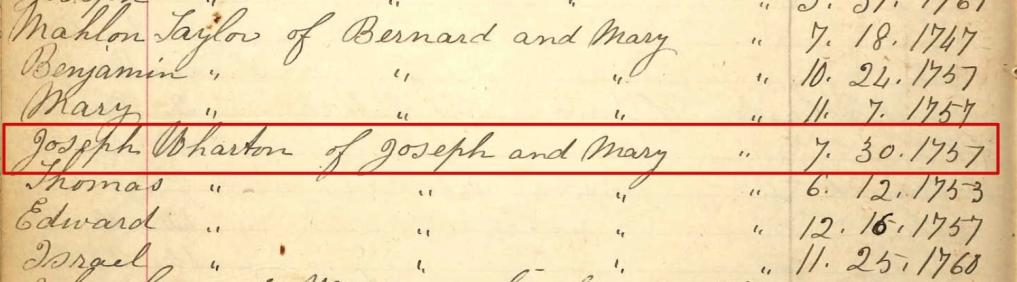 " 3. 31. 1761
Mahlon Taylor of Bernard and Mary " 7. 18. 1747
Benjamin " " " " 10. 24. 1757
Mary " " " " 11. 7. 1757
Joseph Wharton of Joseph and Mary " 7. 30. 1757
Thomas " " " " 6. 12. 1753
Edward " " " " 12. 16. 1757
Israel " " " " 11. 25. 1760